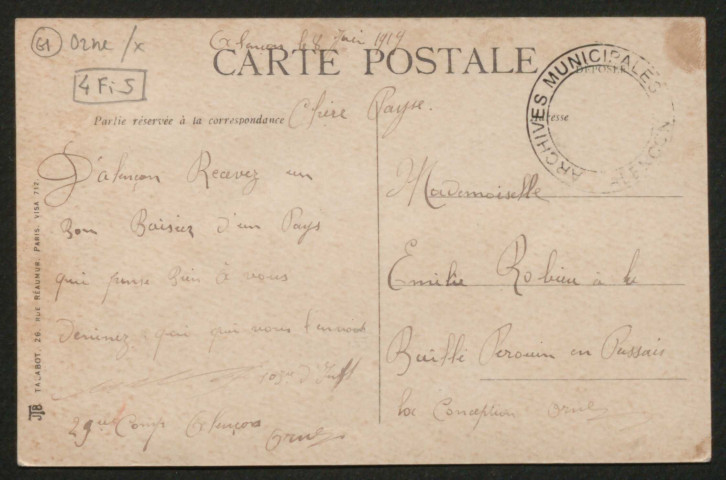 61 Orne /x
4 Fi 5
Alençon le 8 Juin 1917
CARTE POSTALE
Partie réservée à la correspondance
Adresse
ARCHIVES MUNICIPALES
ALENÇON
Chère Payse.
D'alençon Recevez un
Bon Baisiez d'un Pays
qui panse Bien à vous
Devinez qui qui vous l'envoie
103e d'Inft
29me Comp Alençon
Orne
Mademoiselle
Emilie Robieu à la
Baillé Perouin en Passais
la Conception Orne
TALABOT, 26, RUE RÉAUMUR, PARIS. VISA 717